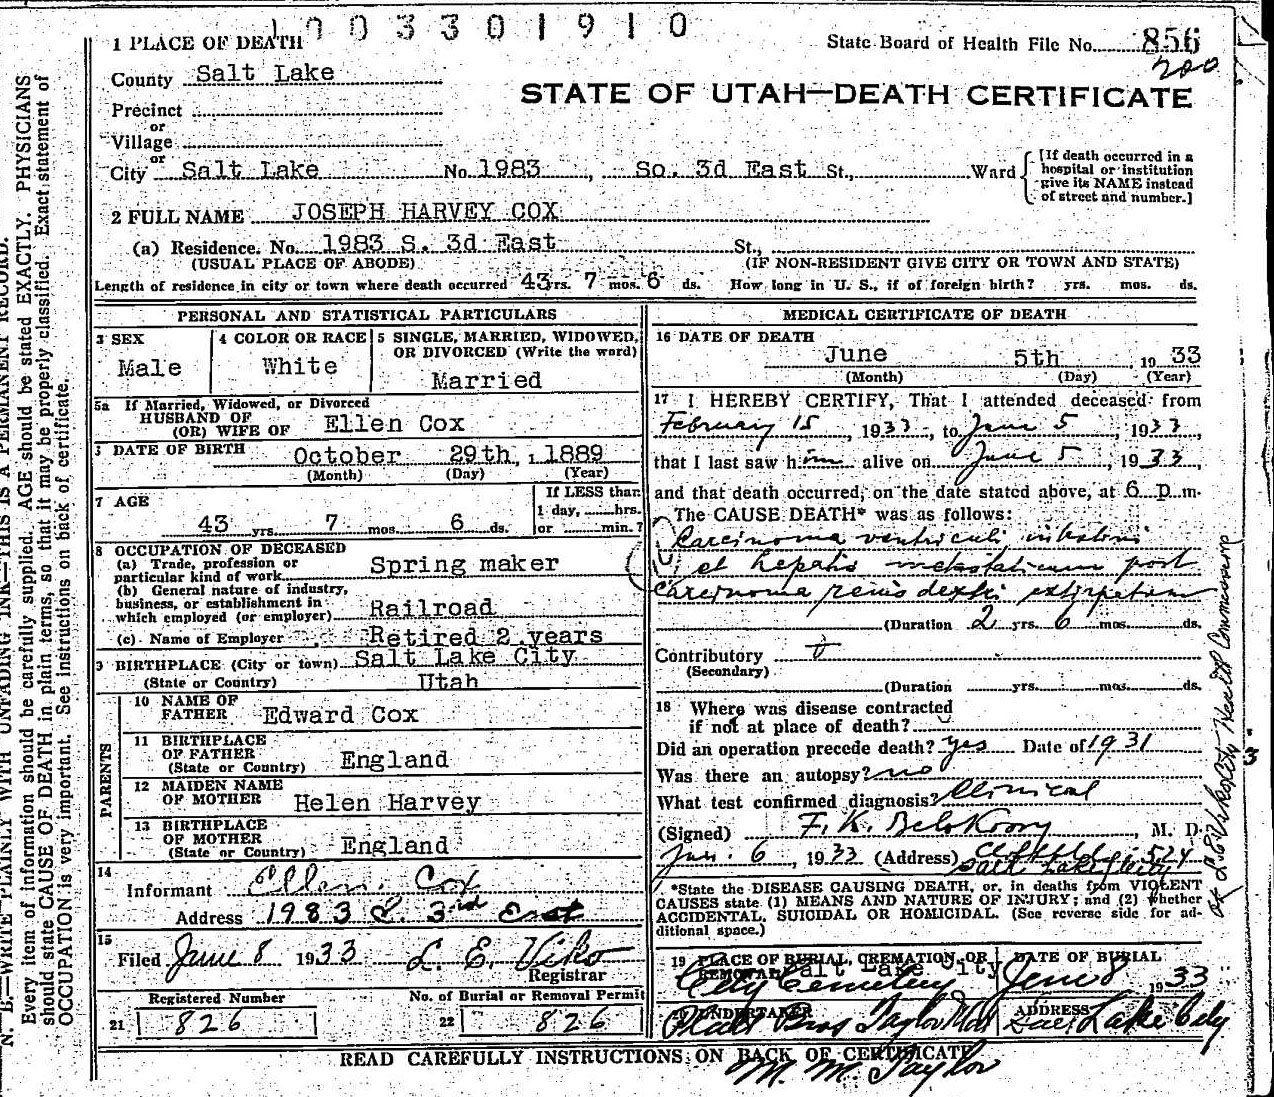 1003301910
1 PLACE OF DEATH
State Board of Health File No. 856
200
County Salt Lake
STATE OF UTAH—DEATH CERTIFICATE
Precinct
or
Village
or
City Salt Lake No. 1983, So. 3d East St., Ward
[If death occurred in a hospital or institution give its NAME instead of street and number.]
2 FULL NAME JOSEPH HARVEY COX
(a) Residence. No. 1983 S. 3d East St.,
(USUAL PLACE OF ABODE) (IF NON-RESIDENT GIVE CITY OR TOWN AND STATE)
Length of residence in city or town where death occurred 43 yrs. 7 mos. 6 ds. How long in U. S., if of foreign birth? yrs. mos. ds.
PERSONAL AND STATISTICAL PARTICULARS
3 SEX
Male
4 COLOR OR RACE
White
5 SINGLE, MARRIED, WIDOWED,
OR DIVORCED (Write the word)
Married
5a If Married, Widowed, or Divorced
HUSBAND OF
(OR) WIFE OF Ellen Cox
DATE OF BIRTH October 29th, 1889
(Month) (Day) (Year)
7 AGE
43 yrs. 7 mos. 6 ds.
If LESS than
1 day, hrs.
or min.?
8 OCCUPATION OF DECEASED
(a) Trade, profession or
particular kind of work Spring maker
(b) General nature of industry,
business, or establishment in
which employed (or employer) Railroad
(c) Name of Employer Retired 2 years
9 BIRTHPLACE (City or town) Salt Lake City
(State or Country) Utah
PARENTS
10 NAME OF
FATHER Edward Cox
11 BIRTHPLACE
OF FATHER
(State or Country) England
12 MAIDEN NAME
OF MOTHER Helen Harvey
13 BIRTHPLACE
OF MOTHER
(State or Country) England
14
Informant Ellen Cox
Address 1983 S. 3rd East
15
Filed June 8 1933 L. E. Viko
Registrar
Registered Number
21 826
No. of Burial or Removal Permit
22 826
MEDICAL CERTIFICATE OF DEATH
16 DATE OF DEATH
June 5th, 1933
(Month) (Day) (Year)
17 I HEREBY CERTIFY, That I attended deceased from
February 15, 1933, to June 5, 1933,
that I last saw him alive on June 5, 1933,
and that death occurred, on the date stated above, at 6 p m.
The CAUSE DEATH* was as follows:
Carcinoma ventriculi intestini
et hepatis metastaticum post
Carcinoma renis dextri extirpation
(Duration 2 yrs. 6 mos. ds.
Contributory
(Secondary)
(Duration yrs. mos. ds.
18 Where was disease contracted
if not at place of death?
Did an operation precede death? yes Date of 1931
Was there an autopsy? no
What test confirmed diagnosis? Clinical
(Signed) F. K. , M. D.
Jun. 6, 1933 (Address) 524
Salt Lake City
*State the DISEASE CAUSING DEATH, or, in deaths from VIOLENT
CAUSES state (1) MEANS AND NATURE OF INJURY; and (2) whether
ACCIDENTAL, SUICIDAL OR HOMICIDAL. (See reverse side for ad-
ditional space.)
19 PLACE OF BURIAL, CREMATION, OR
REMOVAL Salt Lake City
City Cemetery
DATE OF BURIAL
June 8 1933
20 UNDERTAKER
Bros Taylor
ADDRESS
Salt Lake City
M. M. Taylor
READ CAREFULLY INSTRUCTIONS ON BACK OF CERTIFICATE
N. B.—WRITE PLAINLY WITH UNFADING INK—THIS IS A PERMANENT RECORD.
Every item of information should be carefully supplied. AGE should be stated EXACTLY. PHYSICIANS
should state CAUSE OF DEATH in plain terms, so that it may be properly classified. Exact statement of
OCCUPATION is very important. See instructions on back of certificate.
Health Commissioner
3